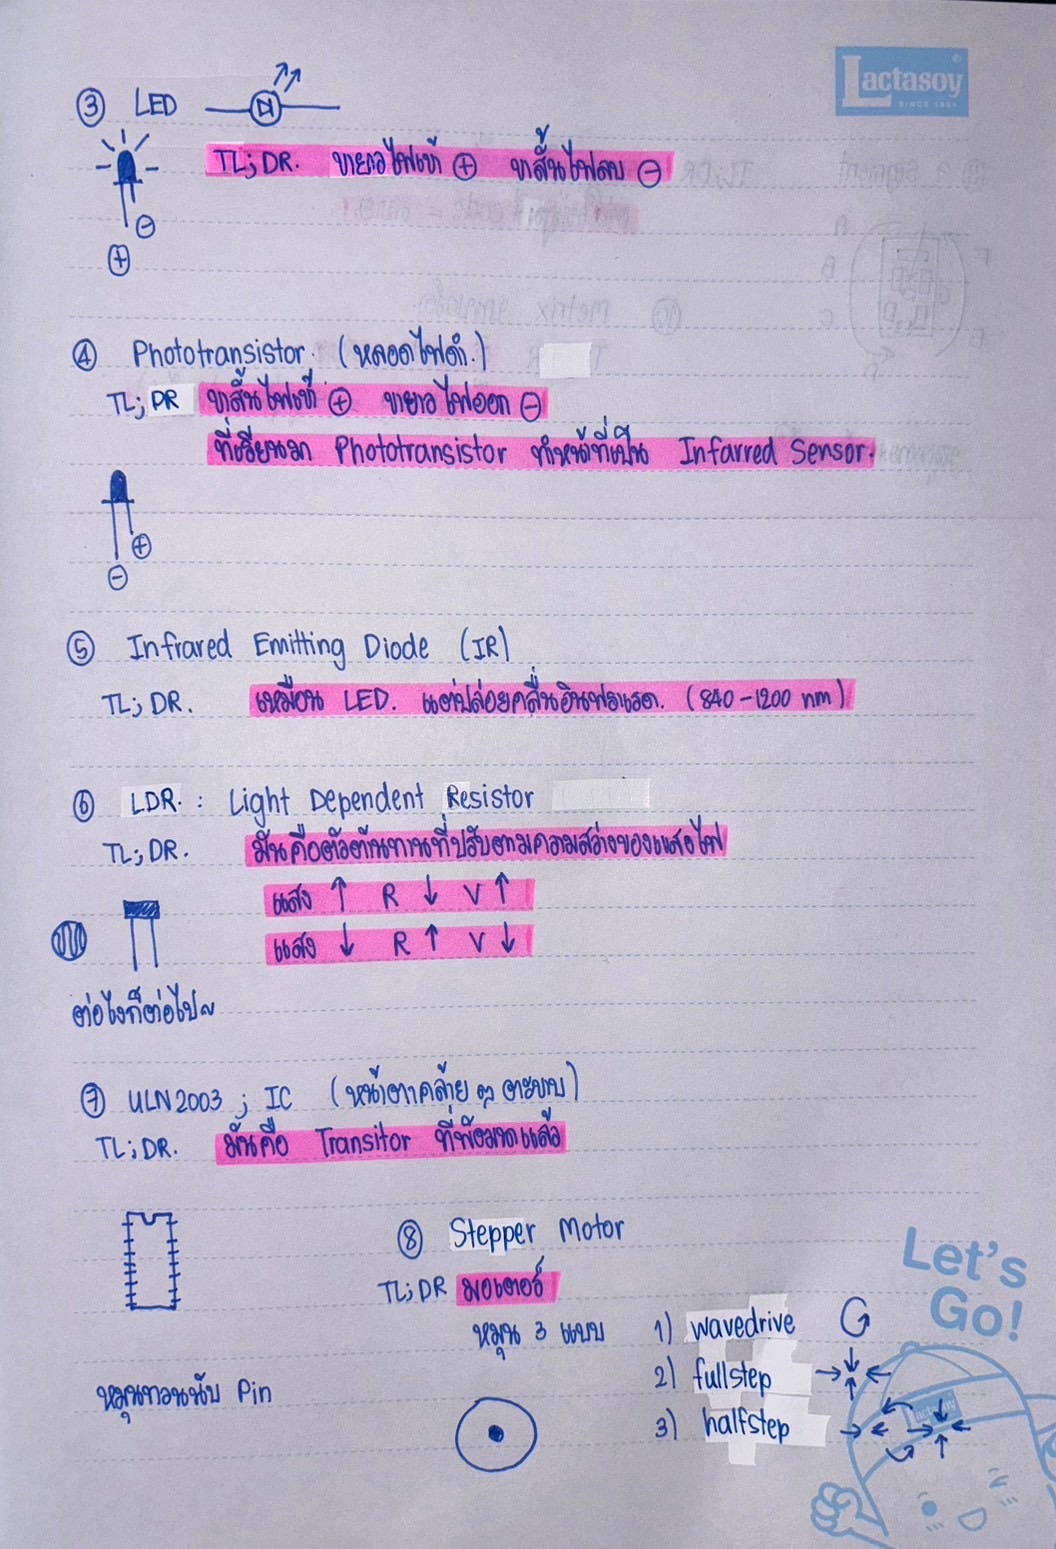 Lactasoy
SINCE 1981
③ LED
TL;DR. ขายาวไฟเข้า ⊕ ขาสั้นไฟลบ ⊖
⊖
⊕
④ Phototransistor. (หลอดไฟดำ.)
TL;DR ขาสั้นไฟเข้า ⊕ ขายาวไฟออก ⊖
ที่เรียนมา Phototransistor ทำหน้าที่เป็น Infarred Sensor.
⊕
⊖
⑤ Infrared Emitting Diode (IR)
TL;DR. เหมือน LED. แต่ปล่อยคลื่นอินฟราเรด. (840-1200 nm)
⑥ LDR. : Light Dependent Resistor
TL;DR. มันคือตัวต้านทานที่ปรับตามความสว่างของแสงไฟ
แสง ↑ R ↓ V ↑
แสง ↓ R ↑ V ↓
ต่อไงก็ต่อไป~
⑦ ULN2003 ; IC (หน้าตาคล้าย ๆ ตะขาบ)
TL;DR. มันคือ Transitor ที่พังมาแล้ว
⑧ Stepper Motor
TL;DR มอเตอร์
หมุน 3 แบบ 1) wavedrive
2) fullstep
3) halfstep
หมุนทวนนับ Pin
Let's
Go!
Lactasoy